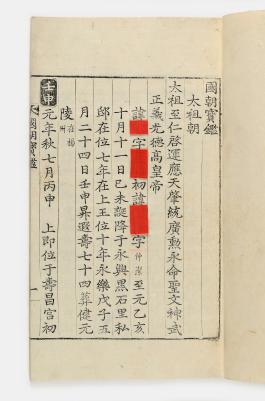 國朝寶鑑
太祖朝
太祖至仁啓運應天肇統廣勳永命聖文神武
正義光德高皇帝
諱 字 初諱 字仲潔至元乙亥
十月十一日己未誕降于永興黑石里私
邸在位七年在上王位十年永樂戊子五
月二十四日壬申昇遐壽七十四葬健元
陵在楊州
壬申元年秋七月丙申 上即位于壽昌宮初
國朝寶鑑